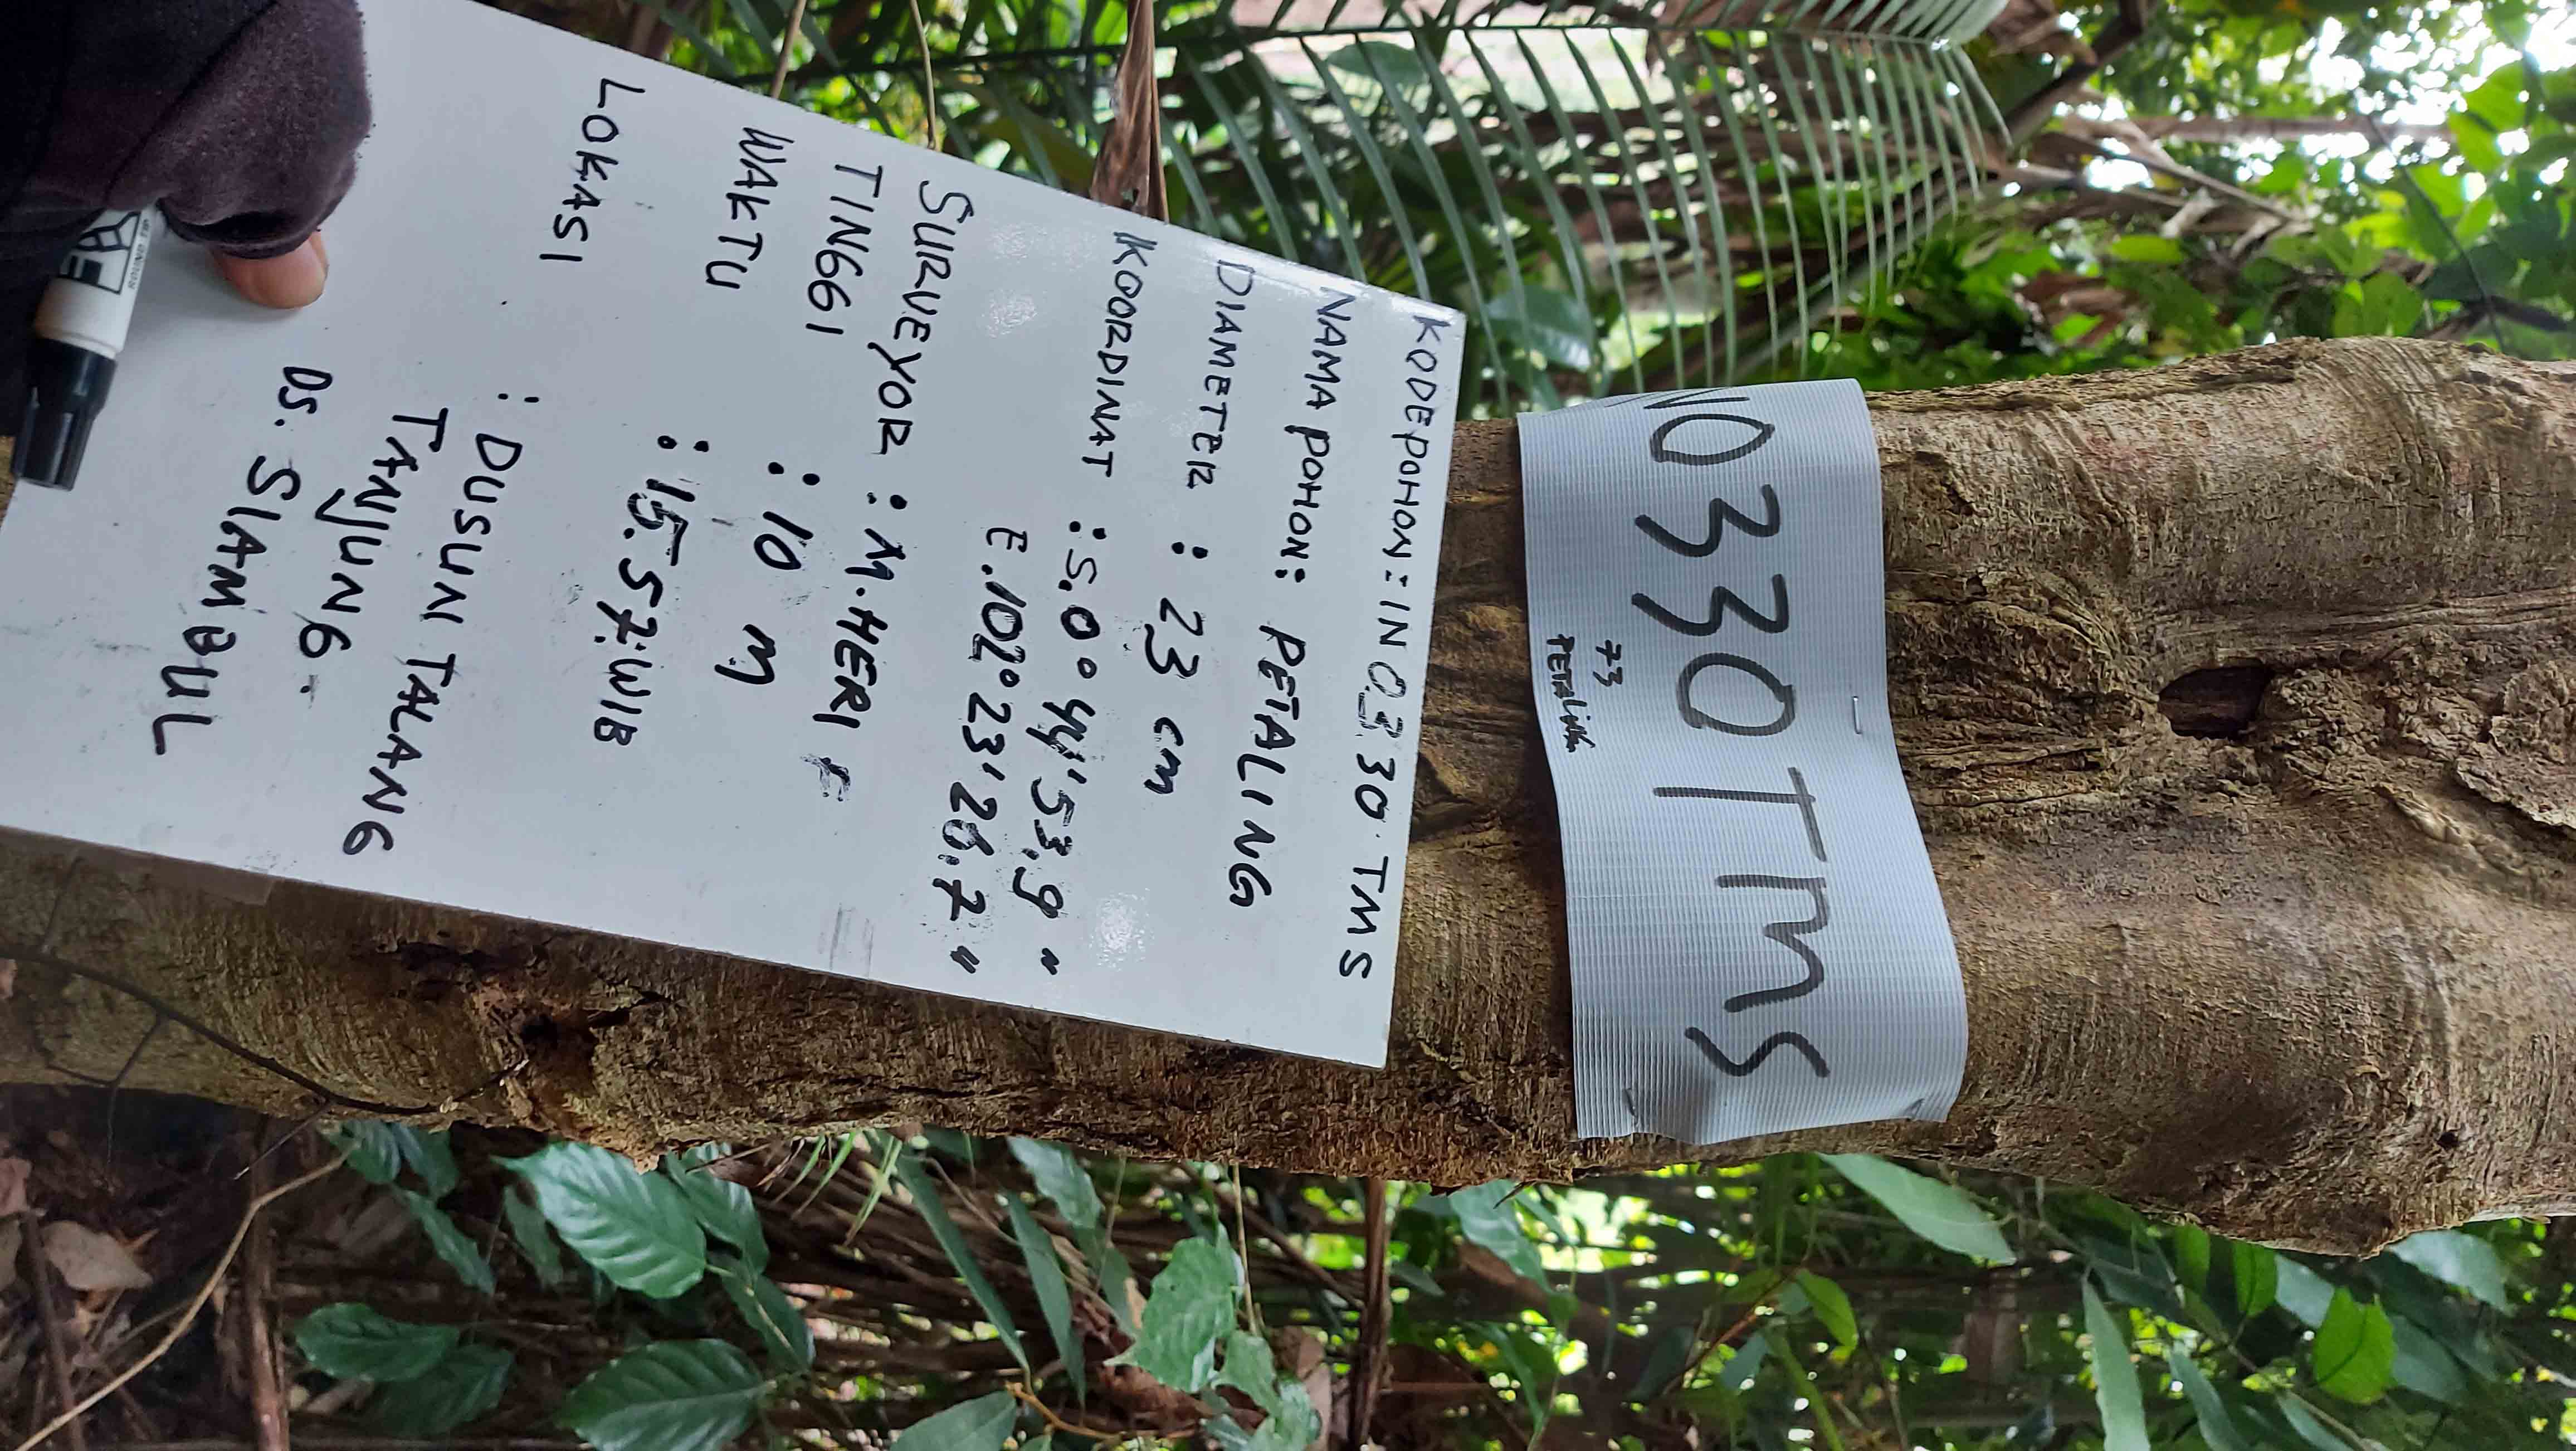 NO330TMS
73
PETALING
KODEPOHON : IN 0330 TMS
NAMA POHON : PETALING
DIAMETER : 23 cm
KOORDINAT : S. 0° 44' 53.9 "
E. 102° 23' 26.7 "
SURVEYOR : M. HERI F
TINGGI : 10 M
WAKTU : 15.57: WIB
LOKASI : DUSUN TALANG
TANJUNG.
DS. SIAMBUL
ROUND TIP